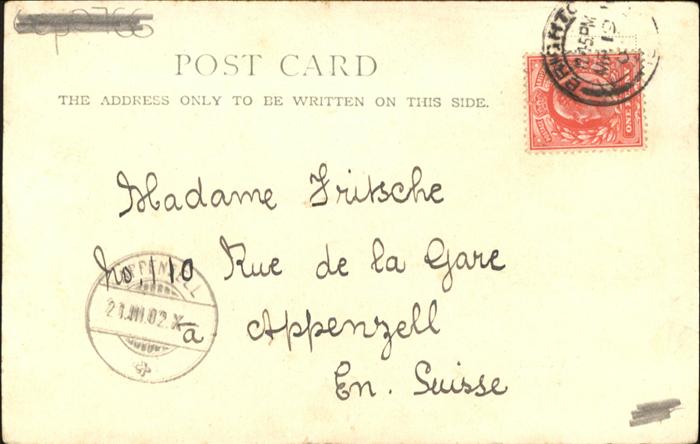 POST CARD
THE ADDRESS ONLY TO BE WRITTEN ON THIS SIDE.
BRIGHTO
12.15PM
MR 19
ONE
Madame Fritsche
No, 110 Rue de la Gare
a Appenzell
En. Suisse
APPENZELL
21.III.02.X